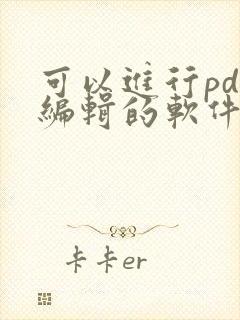 可以進行pd
編輯的軟件
卡卡er